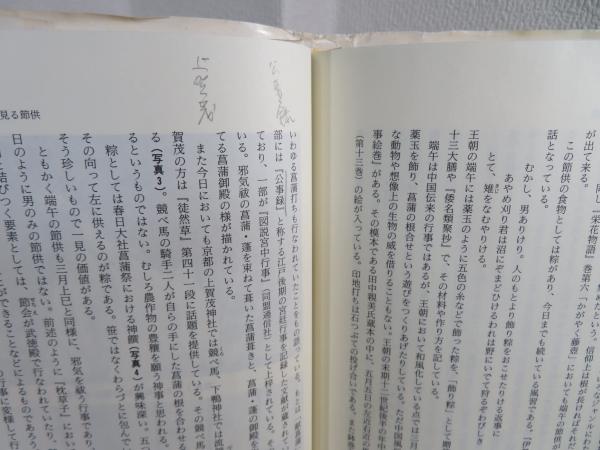 が出て来る。
この節供の食物として粽があり、今日までも続いている風習である。『伊
話となっている。
むかし、男ありけり。人のもとより飾り粽おこせたりける返事に
あやめ刈り君は沼にぞまどひけるわれは野にいでて狩るぞわびしき
とて、雉をなむやりける。
王朝の端午には薬玉のように五色の糸などで飾った粽を、「飾り粽」として贈
十三大膳や『倭名類聚抄』で、その材料や作り方を記している。
端午は中国伝来の行事ではあるが、王朝において和風化している点では三月
薬玉を飾り、菖蒲の根合せという遊びをつくりあげたりしている。ただ中国風
な動物や想像上の生物の威を借りることもない。王朝の末期十二世紀後半の年中
事絵巻』がある。その模本である田中親美氏蔵本の中に、五月五日の左近右近の
(第十三巻)の絵が入っている。印地打ちは石つぶての投げ合いである。また鉢巻
見る節供
上賀茂
いわゆる菖蒲打ちも行なわれていたことをもの語っている。
部には『公事録』と称する江戸後期の宮廷行事を記録した文献が蔵されて
ており、一部が『図説宮中行事』(同盟通信社)として上梓されている。
いる。邪気祓の菖蒲・蓬を束ねて葺いた菖蒲葺きと、菖蒲・蓬の御殿を
てる菖蒲御殿の様が描かれている。
また今日においても京都の上賀茂神社では競べ馬、下鴨神社では流
賀茂の方は『徒然草』第四十一段に話題を提供している。その競べ馬
る(写真3)。競べ馬の騎手二人が自らの手にした菖蒲の根を合わせる
るというものではない。むしろ農作物の豊穣を願う神事と思われる。
粽としては春日大社菖蒲祭における神饌(写真4)が興味深い。五つ
その向って左に供えるのが粽である。笹ではなくわらづとに包んで
そう珍しいもので一見の価値がある。
ともかく端午の節供も三月上巳と同様に、邪気を祓う行事であり、
日のように男のみの節供ではない。前述のように『枕草子』におい
と結びつく要素としては、節会が武徳殿で行なわれていたり、